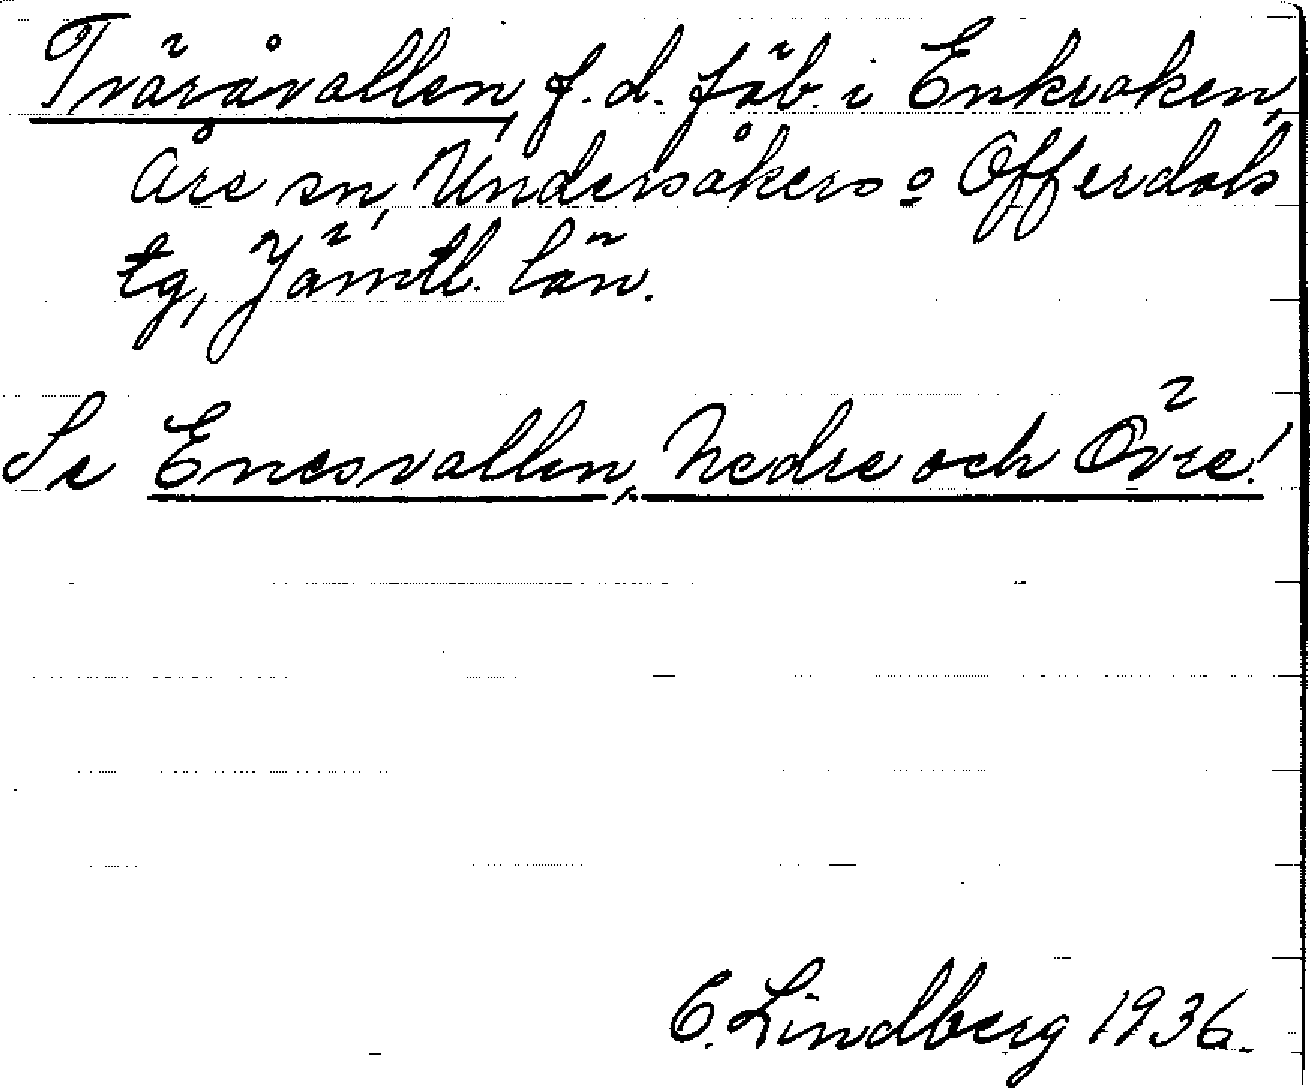 Tväråvallen, f.d. fäb. i Enkroken,
Åre sn, Undersåkers o Offerdals
tg, Jämtl. län.
Se Enesvallen, Nedre och Övre!
C. Lindberg 1936.